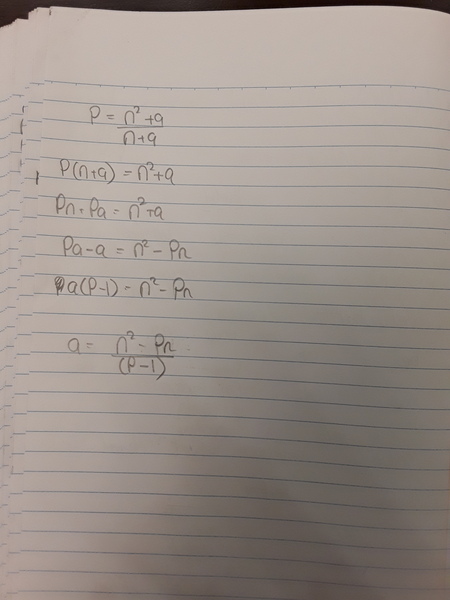 P = n² + a / n + a
P(n+a) = n² + a
Pn + Pa = n² + a
Pa - a = n² - Pn
a(P-1) = n² - Pn
a = n² - Pn / (P-1)